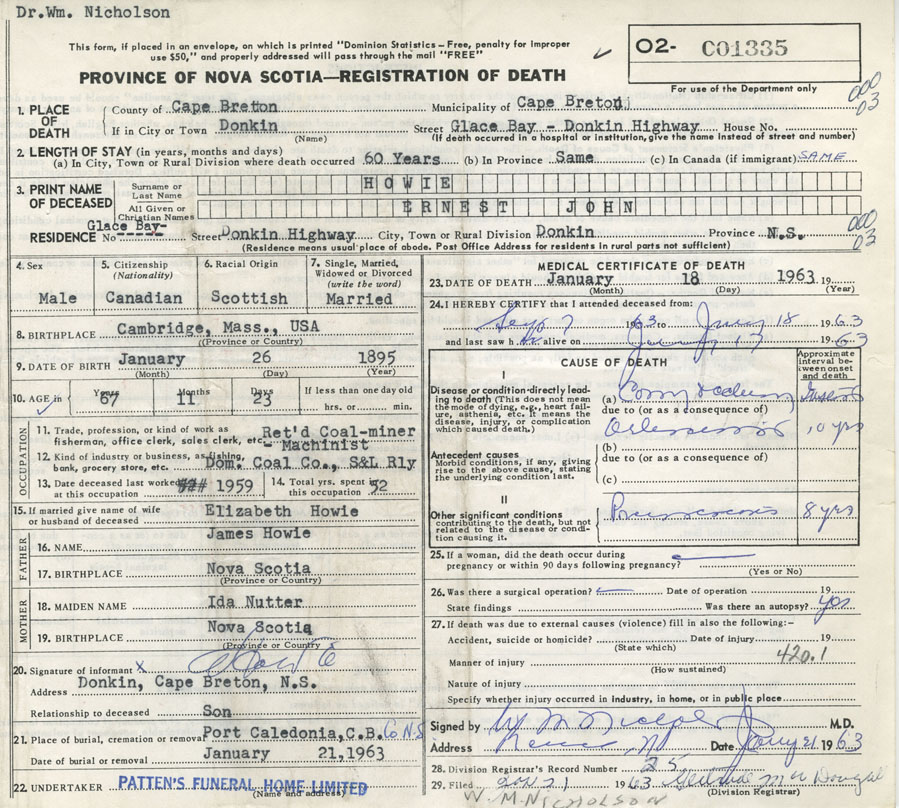 Dr.Wm. Nicholson
This form, if placed in an envelope, on which is printed "Dominion Statistics – Free, penalty for improper
use $50," and properly addressed will pass through the mail "FREE"
O2- C01335
For use of the Department only
PROVINCE OF NOVA SCOTIA—REGISTRATION OF DEATH
000
03
1. PLACE OF DEATH
County of Cape Breton Municipality of Cape Breton
If in City or Town Donkin Street Glace Bay - Donkin Highway House No.
(Name) (If death occurred in a hospital or institution, give the name instead of street and number)
2. LENGTH OF STAY (in years, months and days)
(a) In City, Town or Rural Division where death occurred 60 Years (b) In Province Same (c) In Canada (if immigrant) SAME
3. PRINT NAME OF DECEASED
Surname or Last Name HOWIE
All Given or Christian Names ERNEST JOHN
Glace Bay-
000
03
RESIDENCE No Street Donkin Highway City, Town or Rural Division Donkin Province N.S.
(Residence means usual place of abode. Post Office Address for residents in rural parts not sufficient)
4. Sex
Male
5. Citizenship
(Nationality)
Canadian
6. Racial Origin
Scottish
7. Single, Married,
Widowed or Divorced
(write the word)
Married
8. BIRTHPLACE Cambridge, Mass., USA
(Province or Country)
9. DATE OF BIRTH January 26 1895
(Month) (Day) (Year)
10. AGE in
Years Months Days If less than one day old
67 11 23 hrs. or min.
OCCUPATION
11. Trade, profession, or kind of work as
fisherman, office clerk, sales clerk, etc. Ret'd Coal-miner
- Machinist
12. Kind of industry or business, as fishing,
bank, grocery store, etc. Dom. Coal Co., S&L Rly
13. Date deceased last worked at this occupation 1959
14. Total yrs. spent in this occupation 52
15. If married give name of wife
or husband of deceased Elizabeth Howie
FATHER
16. NAME James Howie
17. BIRTHPLACE Nova Scotia
(Province or Country)
MOTHER
18. MAIDEN NAME Ida Nutter
19. BIRTHPLACE Nova Scotia
(Province or Country)
20. Signature of informant x
Address Donkin, Cape Breton, N.S.
Relationship to deceased Son
21. Place of burial, cremation or removal Port Caledonia, C.B. Co N.S
Date of burial or removal January 21, 1963
22. UNDERTAKER PATTEN'S FUNERAL HOME LIMITED
(Name and address)
MEDICAL CERTIFICATE OF DEATH
23. DATE OF DEATH January 18 1963 19
(Month) (Day) (Year)
24. I HEREBY CERTIFY that I attended deceased from:
Sept 7 1963 to Jany 18 1963
and last saw h alive on Jany 17 1963
CAUSE OF DEATH
Approximate interval between onset and death
I
Disease or condition directly leading to death (This does not mean the mode of dying, e.g., heart failure, asthenia, etc. It means the disease, injury, or complication which caused death.)
(a)
due to (or as a consequence of)
10 yrs
(b)
Antecedent causes
Morbid conditions, if any, giving rise to the above cause, stating the underlying condition last.
due to (or as a consequence of)
(c)
II
Other significant conditions
contributing to the death, but not related to the disease or condition causing it.
8 yrs
25. If a woman, did the death occur during
pregnancy or within 90 days following pregnancy?
(Yes or No)
26. Was there a surgical operation? Date of operation 19
State findings Was there an autopsy? yes
27. If death was due to external causes (violence) fill in also the following:-
Accident, suicide or homicide? Date of injury 19
(State which)
420.1
Manner of injury
(How sustained)
Nature of injury
Specify whether injury occurred in industry, in home, or in public place
Signed by M.D.
Address Date Jany 21 1963
28. Division Registrar's Record Number 25
29. Filed Jan 21 1963 Gertrude McDougal
(Division Registrar)
W. M. NICHOLSON